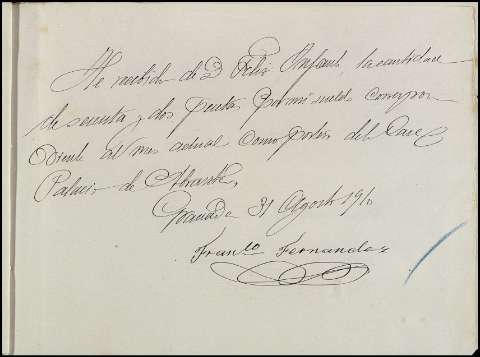 He recibido de D Felix Infante, la cantidad
de sesenta y dos pesetas por mi sueldo correspon
diente al mes actual como portero del
Palacio de Abrantes.
Granada 31 Agosto 1910
Franco Fernandez